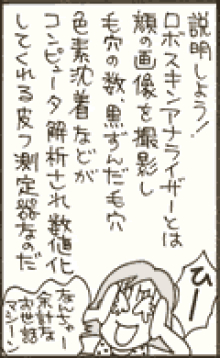 説明しよう!
ロボスキンアナライザーとは
顔の画像を撮影し
毛穴の数、黒ずんだ毛穴
色素沈着などが
コンピュータ解析され数値化
してくれる皮フ測定器なのだ
ひー
なんちゅー
余計な
お世話
マシーン